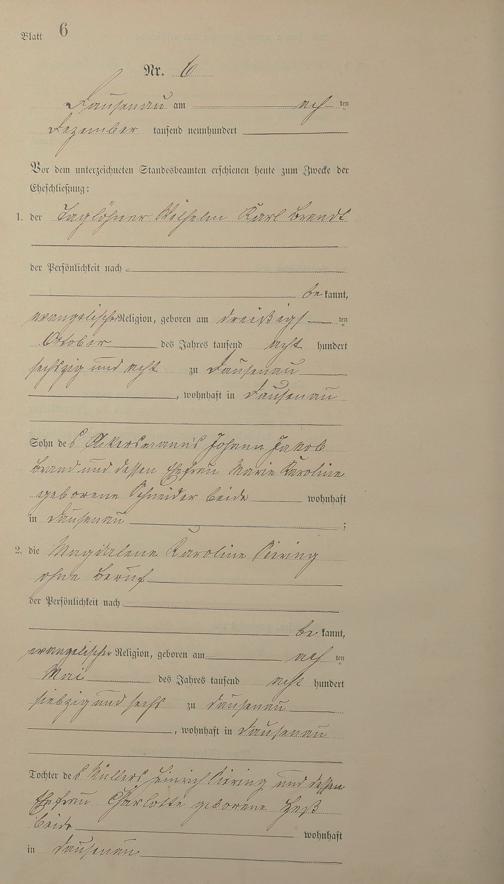 Blatt 6
Nr. 6
Dausenau am acht ten
Dezember tausend neunhundert
Vor dem unterzeichneten Standesbeamten erschienen heute zum Zwecke der
Eheschließung:
1. der Taglöhner Wilhelm Karl Brandt
der Persönlichkeit nach
be kannt,
evangelischer Religion, geboren am dreißigs ten
October des Jahres tausend acht hundert
sechszig und acht zu Dausenau
, wohnhaft in Dausenau
Sohn des Ackersmanns Johann Jakob
Brand und dessen Ehefrau Marie Karoline
geborene Schneider beide wohnhaft
in Dausenau ;
2. die Magdalene Karoline
ohne Beruf
der Persönlichkeit nach
be kannt,
evangelischer Religion, geboren am ach ten
Mai des Jahres tausend acht hundert
siebzig und sechs zu Dausenau
, wohnhaft in Dausenau
Tochter des Müllers Heinrich und dessen
Ehefrau Charlotte geborene Heß
beide wohnhaft
in Dausenau